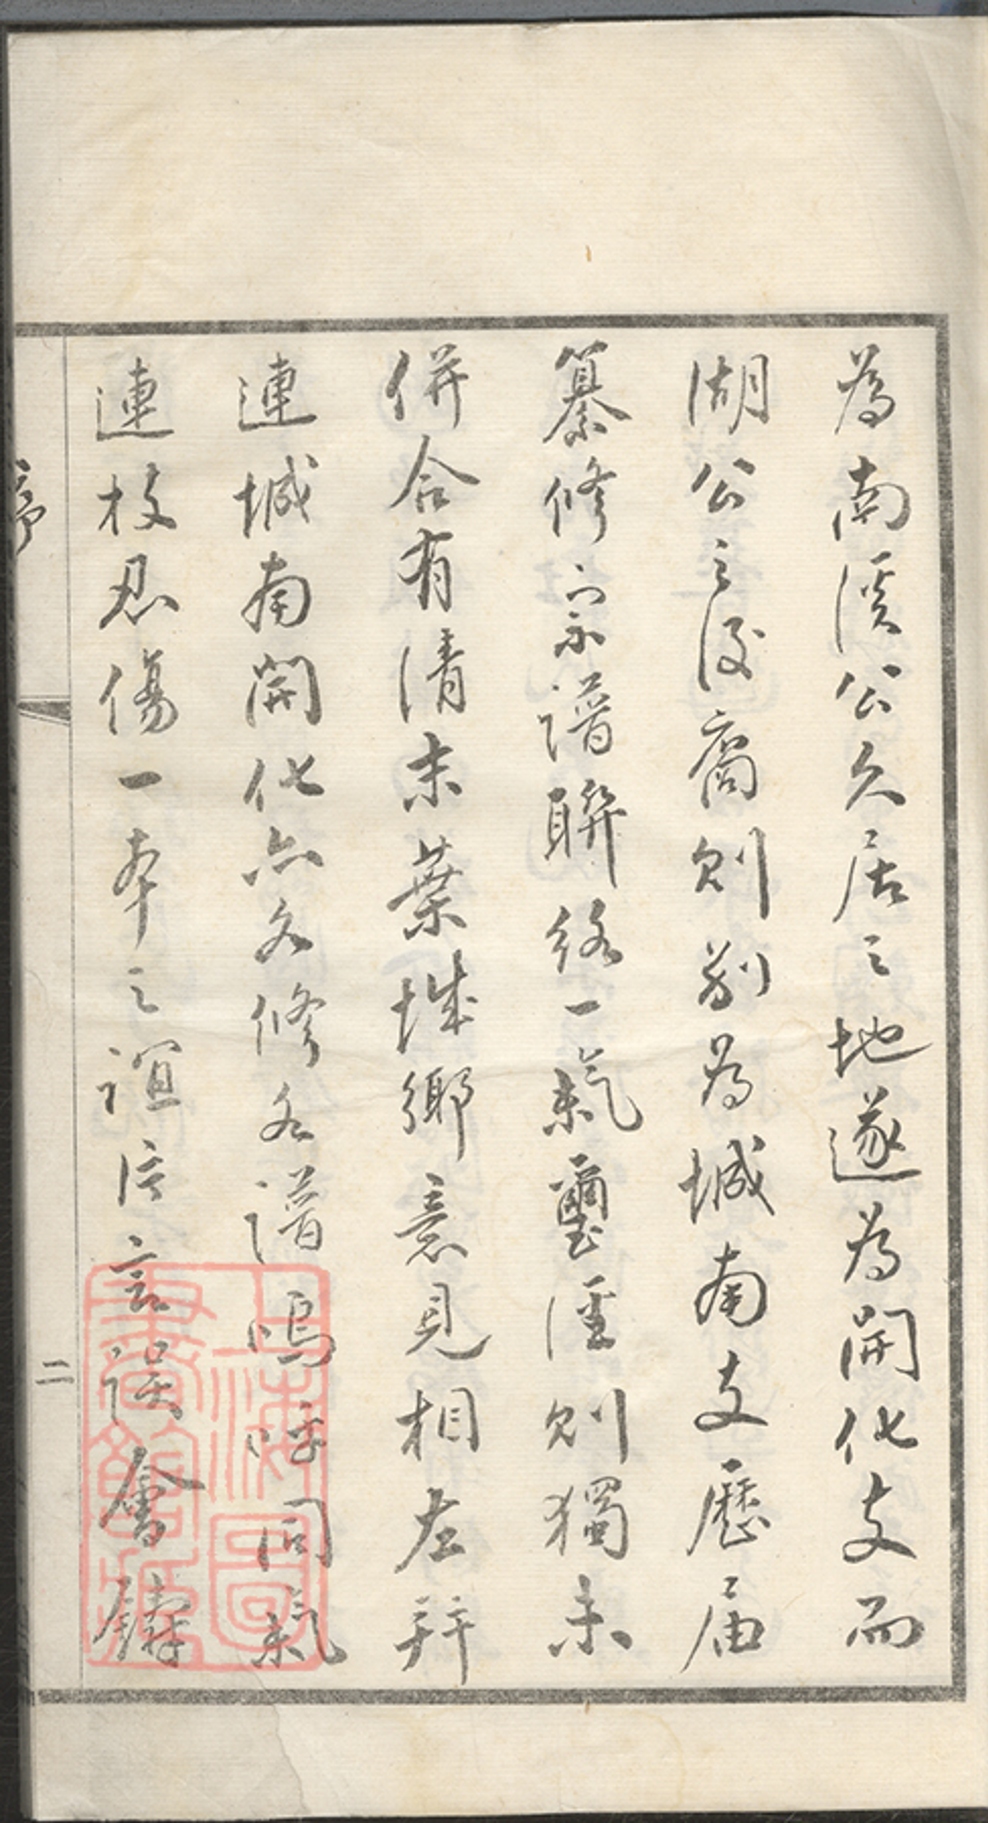 為南溪公久居之地遂為開化支而
湖公之後裔則別為城南支歷屆
纂修宗譜聯絡一氣璽溪則獨未
併合有清末葉城鄉意見相左辩
連城南開化亦各修各譜嗚呼同氣
連枝忍傷一本之誼片言誤會鑄
序
二
上海圖書館藏